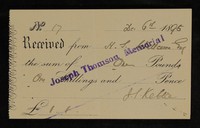 No 17 Dec 6th 1895
Received from
the sum of One Pounds
Shillings and Pence
Joseph Thomson Memorial
£1
J S Keltie